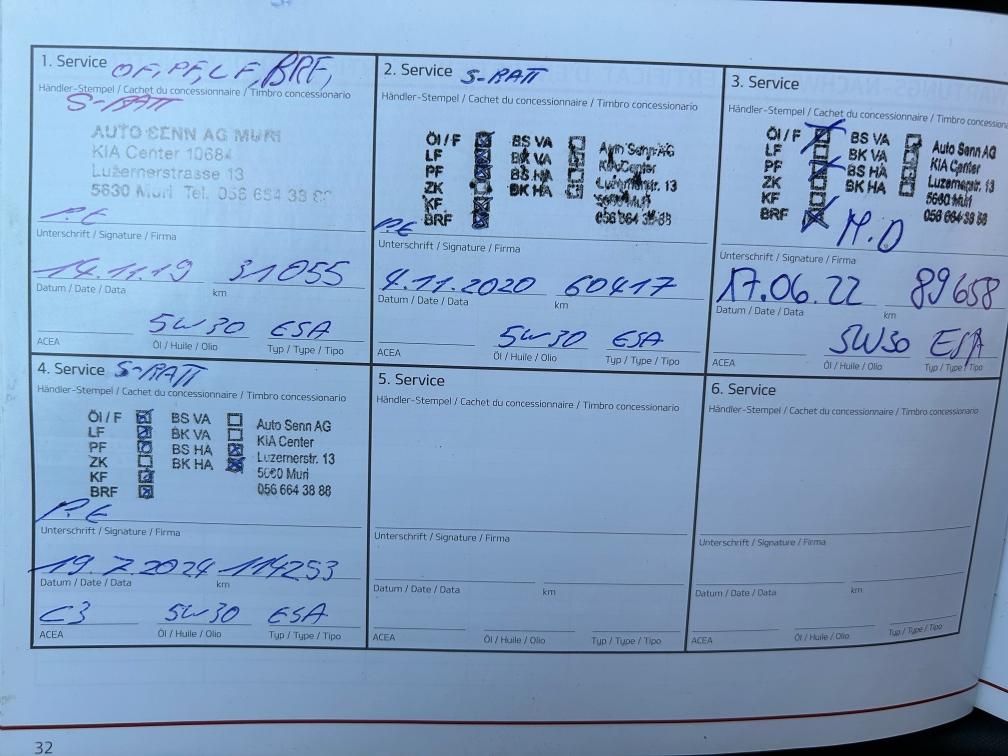 1. Service OF, PF, LF, BRF,
Händler-Stempel / Cachet du concessionnaire / Timbro concessionario
S-RATT
AUTO SENN AG MURI
KIA Center 10684
Luzernerstrasse 13
5630 Muri Tel. 056 664 38 88
P.E
Unterschrift / Signature / Firma
14.11.19 31055
Datum / Date / Data km
5W30 ESA
ACEA Öl / Huile / Olio Typ / Type / Tipo
2. Service S-RATT
Händler-Stempel / Cachet du concessionnaire / Timbro concessionario
Öl / F BS VA
LF BK VA Auto Senn AG
PF BS HA KIA Center
ZK BK HA Luzernerstr. 13
KF 5630 Muri
BRF 056 664 38 88
P.E
Unterschrift / Signature / Firma
4.11.2020 60417
Datum / Date / Data km
5W30 ESA
ACEA Öl / Huile / Olio Typ / Type / Tipo
3. Service
Händler-Stempel / Cachet du concessionnaire / Timbro concession
Öl / F BS VA
LF BK VA Auto Senn AG
PF BS HA KIA Center
ZK BK HA Luzernerstr. 13
KF 5630 Muri
BRF 056 664 38 88
M.D
Unterschrift / Signature / Firma
17.06.22 89658
Datum / Date / Data km
5W30 ESA
ACEA Öl / Huile / Olio Typ / Type / Tipo
4. Service S-RATT
Händler-Stempel / Cachet du concessionnaire / Timbro concessionario
Öl / F BS VA Auto Senn AG
LF BK VA KIA Center
PF BS HA Luzernerstr. 13
ZK BK HA 5630 Muri
KF 056 664 38 88
BRF
P.E
Unterschrift / Signature / Firma
19.7.2024 114253
Datum / Date / Data km
C3 5W30 ESA
ACEA Öl / Huile / Olio Typ / Type / Tipo
5. Service
Händler-Stempel / Cachet du concessionnaire / Timbro concessionario
Unterschrift / Signature / Firma
Datum / Date / Data km
ACEA Öl / Huile / Olio Typ / Type / Tipo
6. Service
Händler-Stempel / Cachet du concessionnaire / Timbro concessionario
Unterschrift / Signature / Firma
Datum / Date / Data km
ACEA Öl / Huile / Olio Typ / Type / Tipo
32